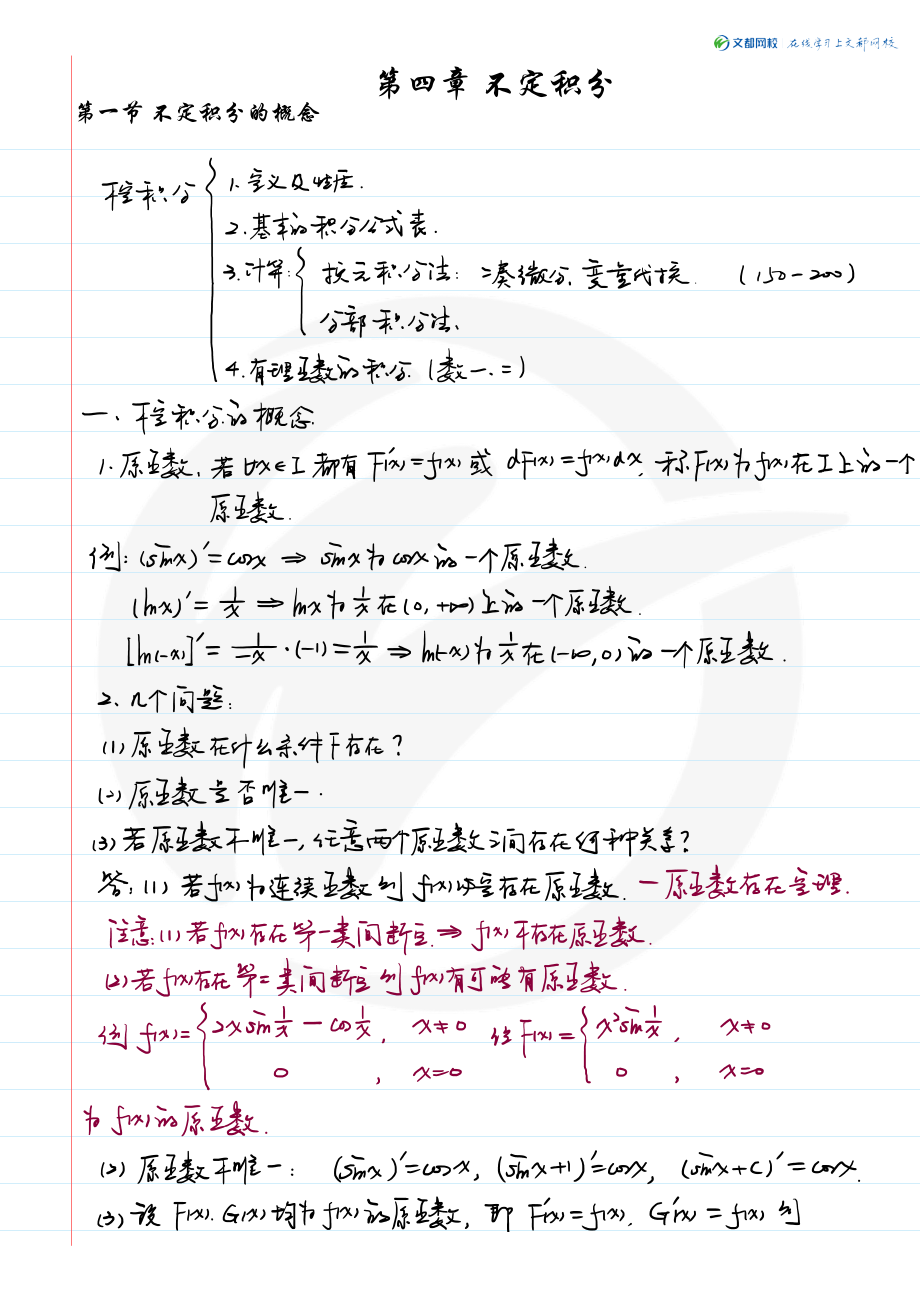 文都网校 在线学习上文都网校
第四章 不定积分
第一节 不定积分的概念
不定积分 { 1.定义及性质.
2.基本的积分公式表.
3.计算: { 换元积分法: 凑微分, 变量代换. (150-200)
分部积分法.
4.有理函数的积分. (数一、二)
一、不定积分的概念.
1.原函数, 若∀x∈I 都有 F'(x)=f(x) 或 dF(x)=f(x)dx, 称F(x)为f(x)在I上的一个
原函数.
例: (sinx)'=cosx ⇒ sinx为cosx的一个原函数.
(lnx)'=1/x ⇒ lnx为1/x在(0,+∞)上的一个原函数.
[ln(-x)]'=1/(-x)·(-1)=1/x ⇒ ln(-x)为1/x在(-∞,0)的一个原函数.
2、几个问题:
(1)原函数在什么条件下存在?
(2)原函数是否唯一.
(3)若原函数不唯一,任意两个原函数之间存在何种关系?
答: (1) 若f(x)为连续函数则f(x)必定存在原函数. —原函数存在定理.
注意: (1)若f(x)存在第一类间断点⇒f(x)不存在原函数.
(2)若f(x)存在第二类间断点则f(x)有可能有原函数.
例 f(x)={ 2xsin1/x-cos1/x, x≠0 但F(x)={ x²sin1/x, x≠0
0, x=0 0, x=0
为f(x)的原函数.
(2) 原函数不唯一: (sinx)'=cosx, (sinx+1)'=cosx, (sinx+C)'=cosx.
(3)设 F(x).G(x)均为f(x)的原函数, 即 F'(x)=f(x). G'(x)=f(x) 则